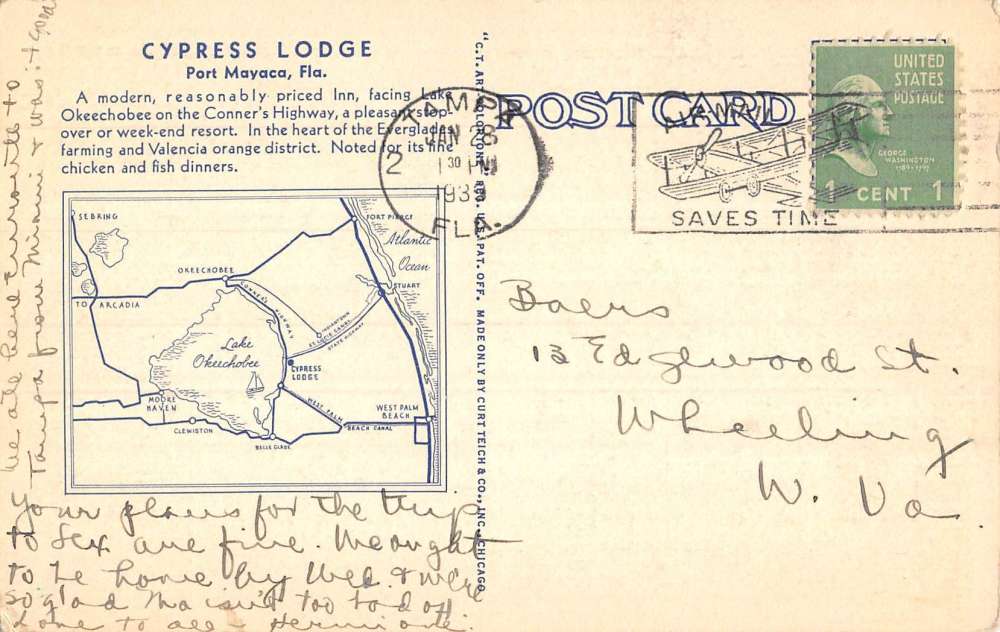 CYPRESS LODGE
Port Mayaca, Fla.
A modern, reasonably priced Inn, facing Lake
Okeechobee on the Conner's Highway, a pleasant stop-
over or week-end resort. In the heart of the Everglades
farming and Valencia orange district. Noted for its fine
chicken and fish dinners.
SEBRING
FORT PIERCE
Atlantic
Ocean
OKEECHOBEE
STUART
TO ARCADIA
CONNER'S HIGHWAY
INDIANTOWN
ST. LUCIE CANAL
STATE HIGHWAY
Lake
Okeechobee
CYPRESS
LODGE
MOORE
HAVEN
WEST PALM
BEACH CANAL
WEST PALM
BEACH
CLEWISTON
BELLE GLADE
We all here enroute to
Tampa from Miami & was
Your plans for the trip
to are fine. We ought
to be home by Wed. & we're
so glad Ma isn't too bad off
Love to all - Hermione.
"C.T. ART-COLORTONE" REG. U.S. PAT. OFF. MADE ONLY BY CURT TEICH & CO., INC., CHICAGO
POST CARD
TAMPA
JUN 28
2 30 PM
193
FLA.
AIR MAIL
SAVES TIME
UNITED
STATES
POSTAGE
GEORGE
WASHINGTON
1789-1797
1 CENT 1
Baers
13 Edgewood St.
Wheeling
W. Va